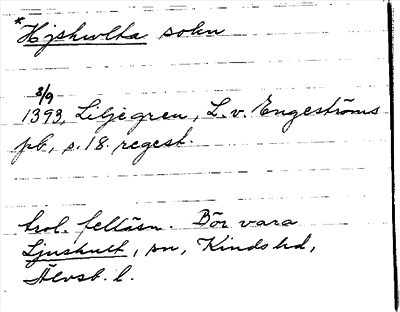 *Hjshulta sokn
8/9
1393, Liljegren, L. v. Engeströms
pb., s. 18. regest.
trol. felläsn. Bör vara
Ljushult, sn, Kinds hd,
Älvsb. l.